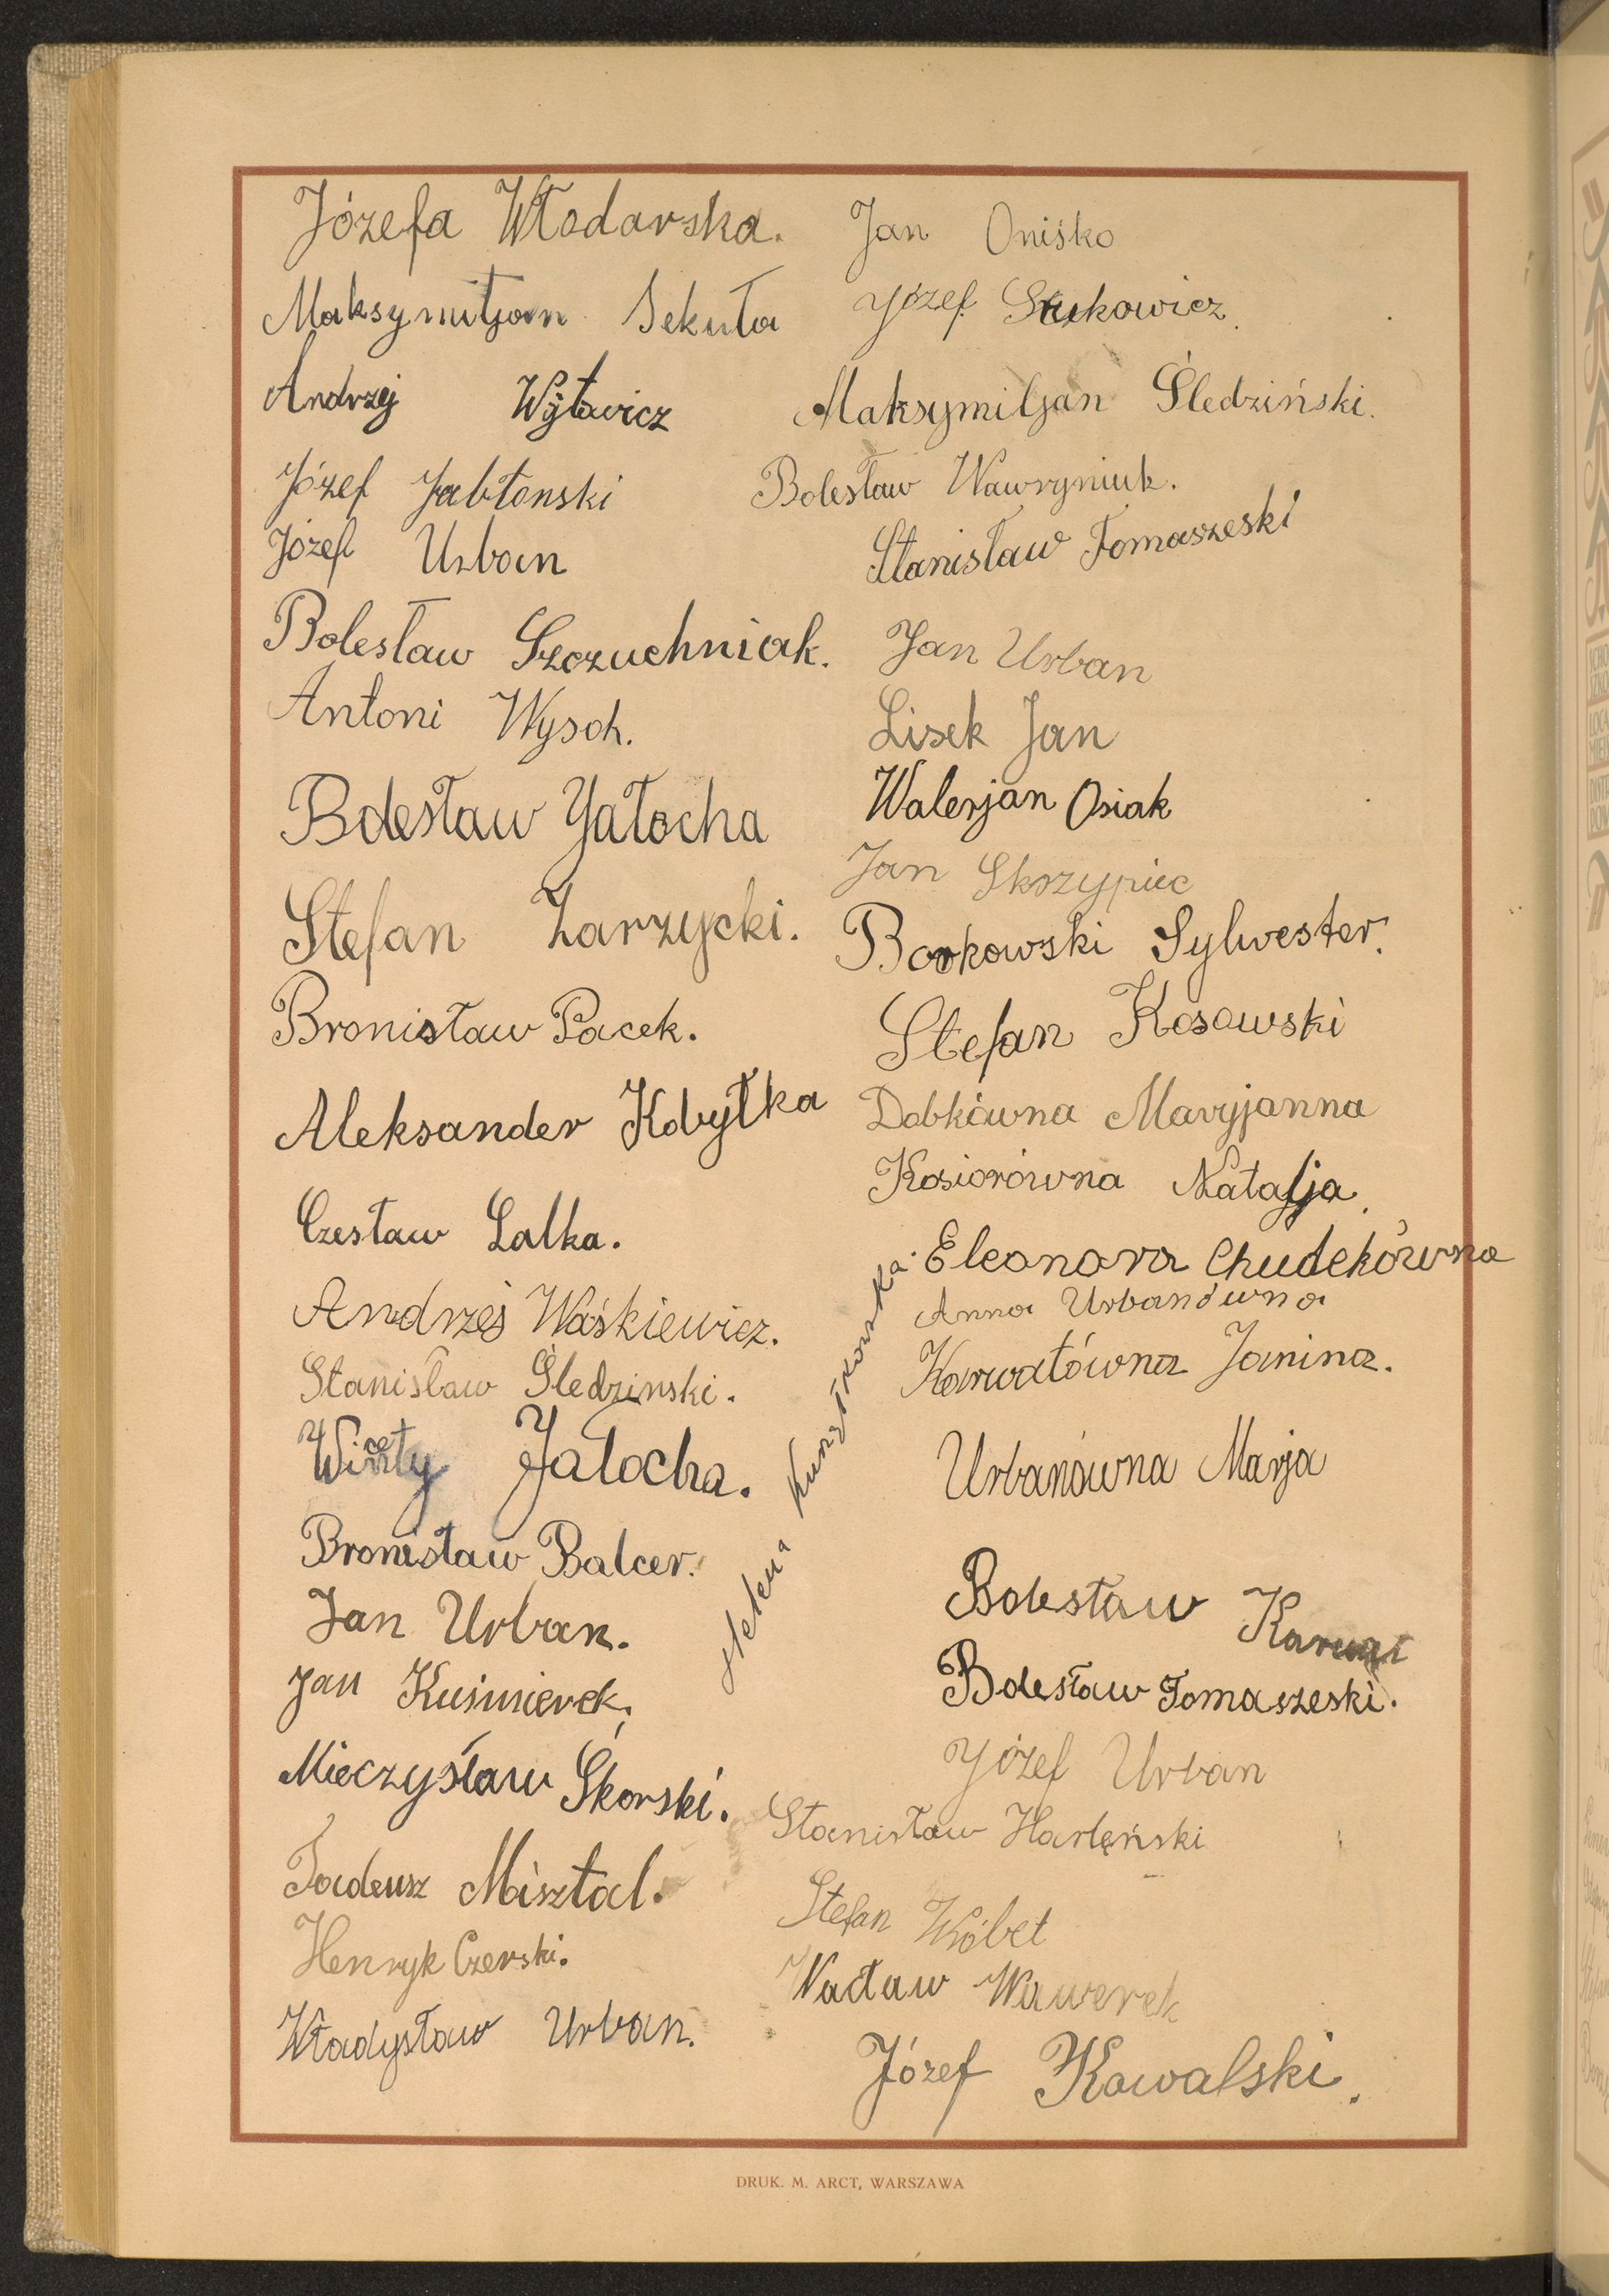 Józefa Włodarska.
Maksymiljan Sekuła
Andrzej Wyłowicz
Józef Jabłonski
Józef Urban
Bolesław Szczuchniak.
Antoni Wysok.
Bolesław Jałocha
Stefan Zarzycki.
Bronisław Pacek.
Aleksander Kobyłka
Czesław Lalka.
Andrzej Waśkiewicz.
Stanisław Śledzinski.
Jałocha.
Bronisław Balcer.
Jan Urban.
Jan Kuśmierek.
Mieczysław Skorski.
Tadeusz Misztal.
Henryk Czerski.
Władysław Urban.
Helena
Jan Oniśko
Józef
Maksymiljan Śledziński.
Bolesław Wawryniuk.
Stanisław Tomaszeski
Jan Urban
Lisek Jan
Walerjan Osiak
Jan Skrzypiec
Borkowski Sylwester.
Stefan Kosowski
Dobkówna Maryjanna
Kosiorówna Natalja.
Eleonora Chudekówna
Anna Urbanówna
Karwatówna Janina.
Urbanówna Marja
Bolesław
Bolesław Tomaszeski.
Józef Urban
Stanisław Harłęński
Stefan Wróbel
Wacław Wawerek
Józef Kowalski.
DRUK. M. ARCT, WARSZAWA